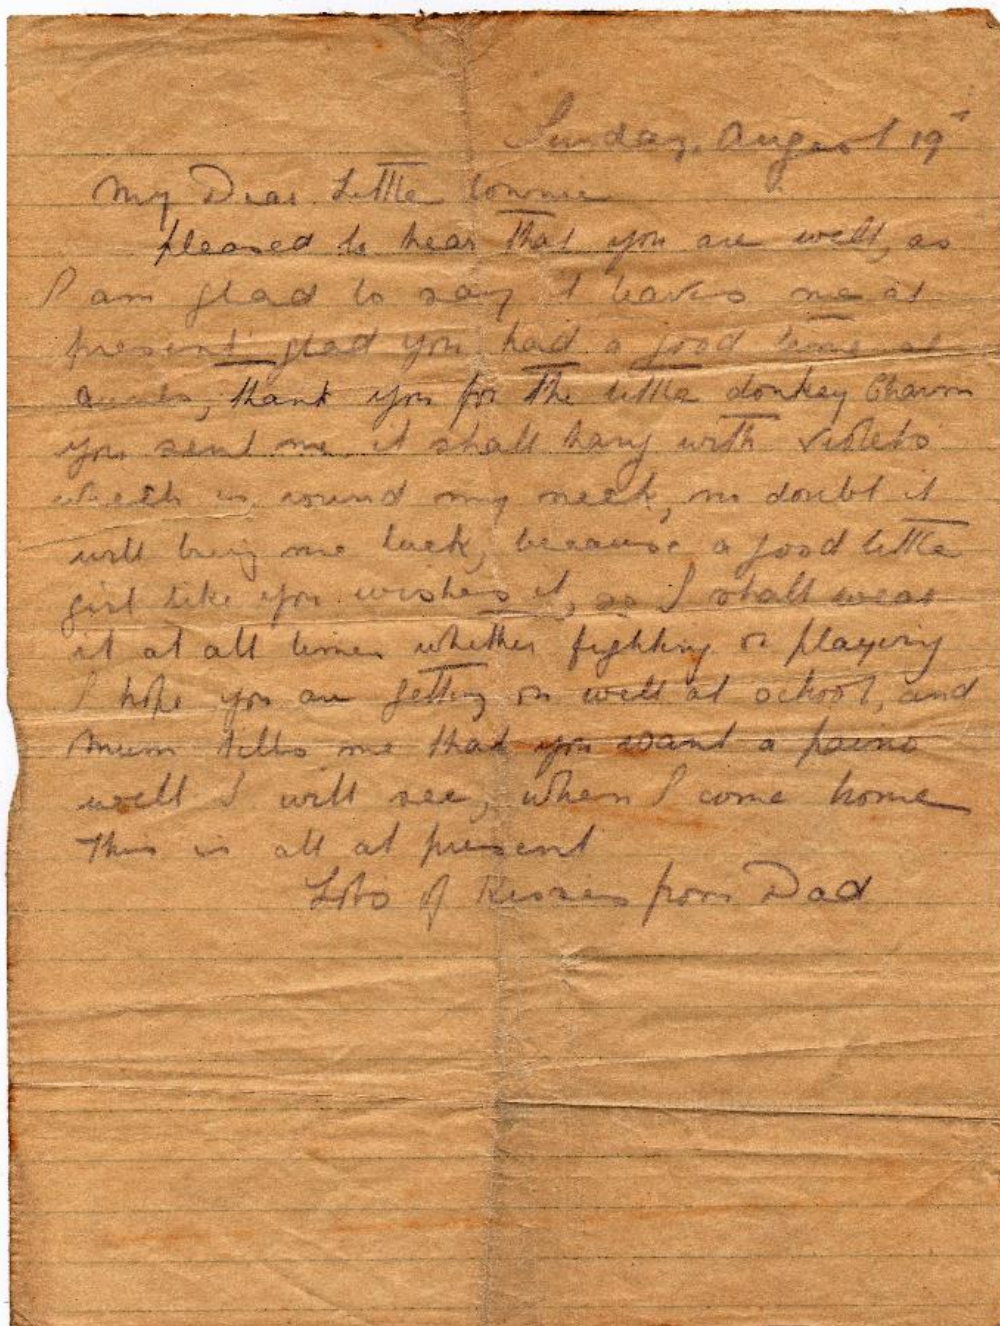 Sunday, August 19th
My Dear Little Connie
pleased to hear that you are well, as
I am glad to say it leaves me at
present glad you had a good time at
aunts, thank you for the little donkey Charm
you sent me it shall hang with Violets
which is round my neck, no doubt it
will bring me luck, because a good little
girl like you wishes it, so I shall wear
it at all times whether fighting or playing
I hope you are getting on well at school, and
Mum tells me that you want a paino
well I will see, when I come home
This is all at present
Lots of Kisses from Dad